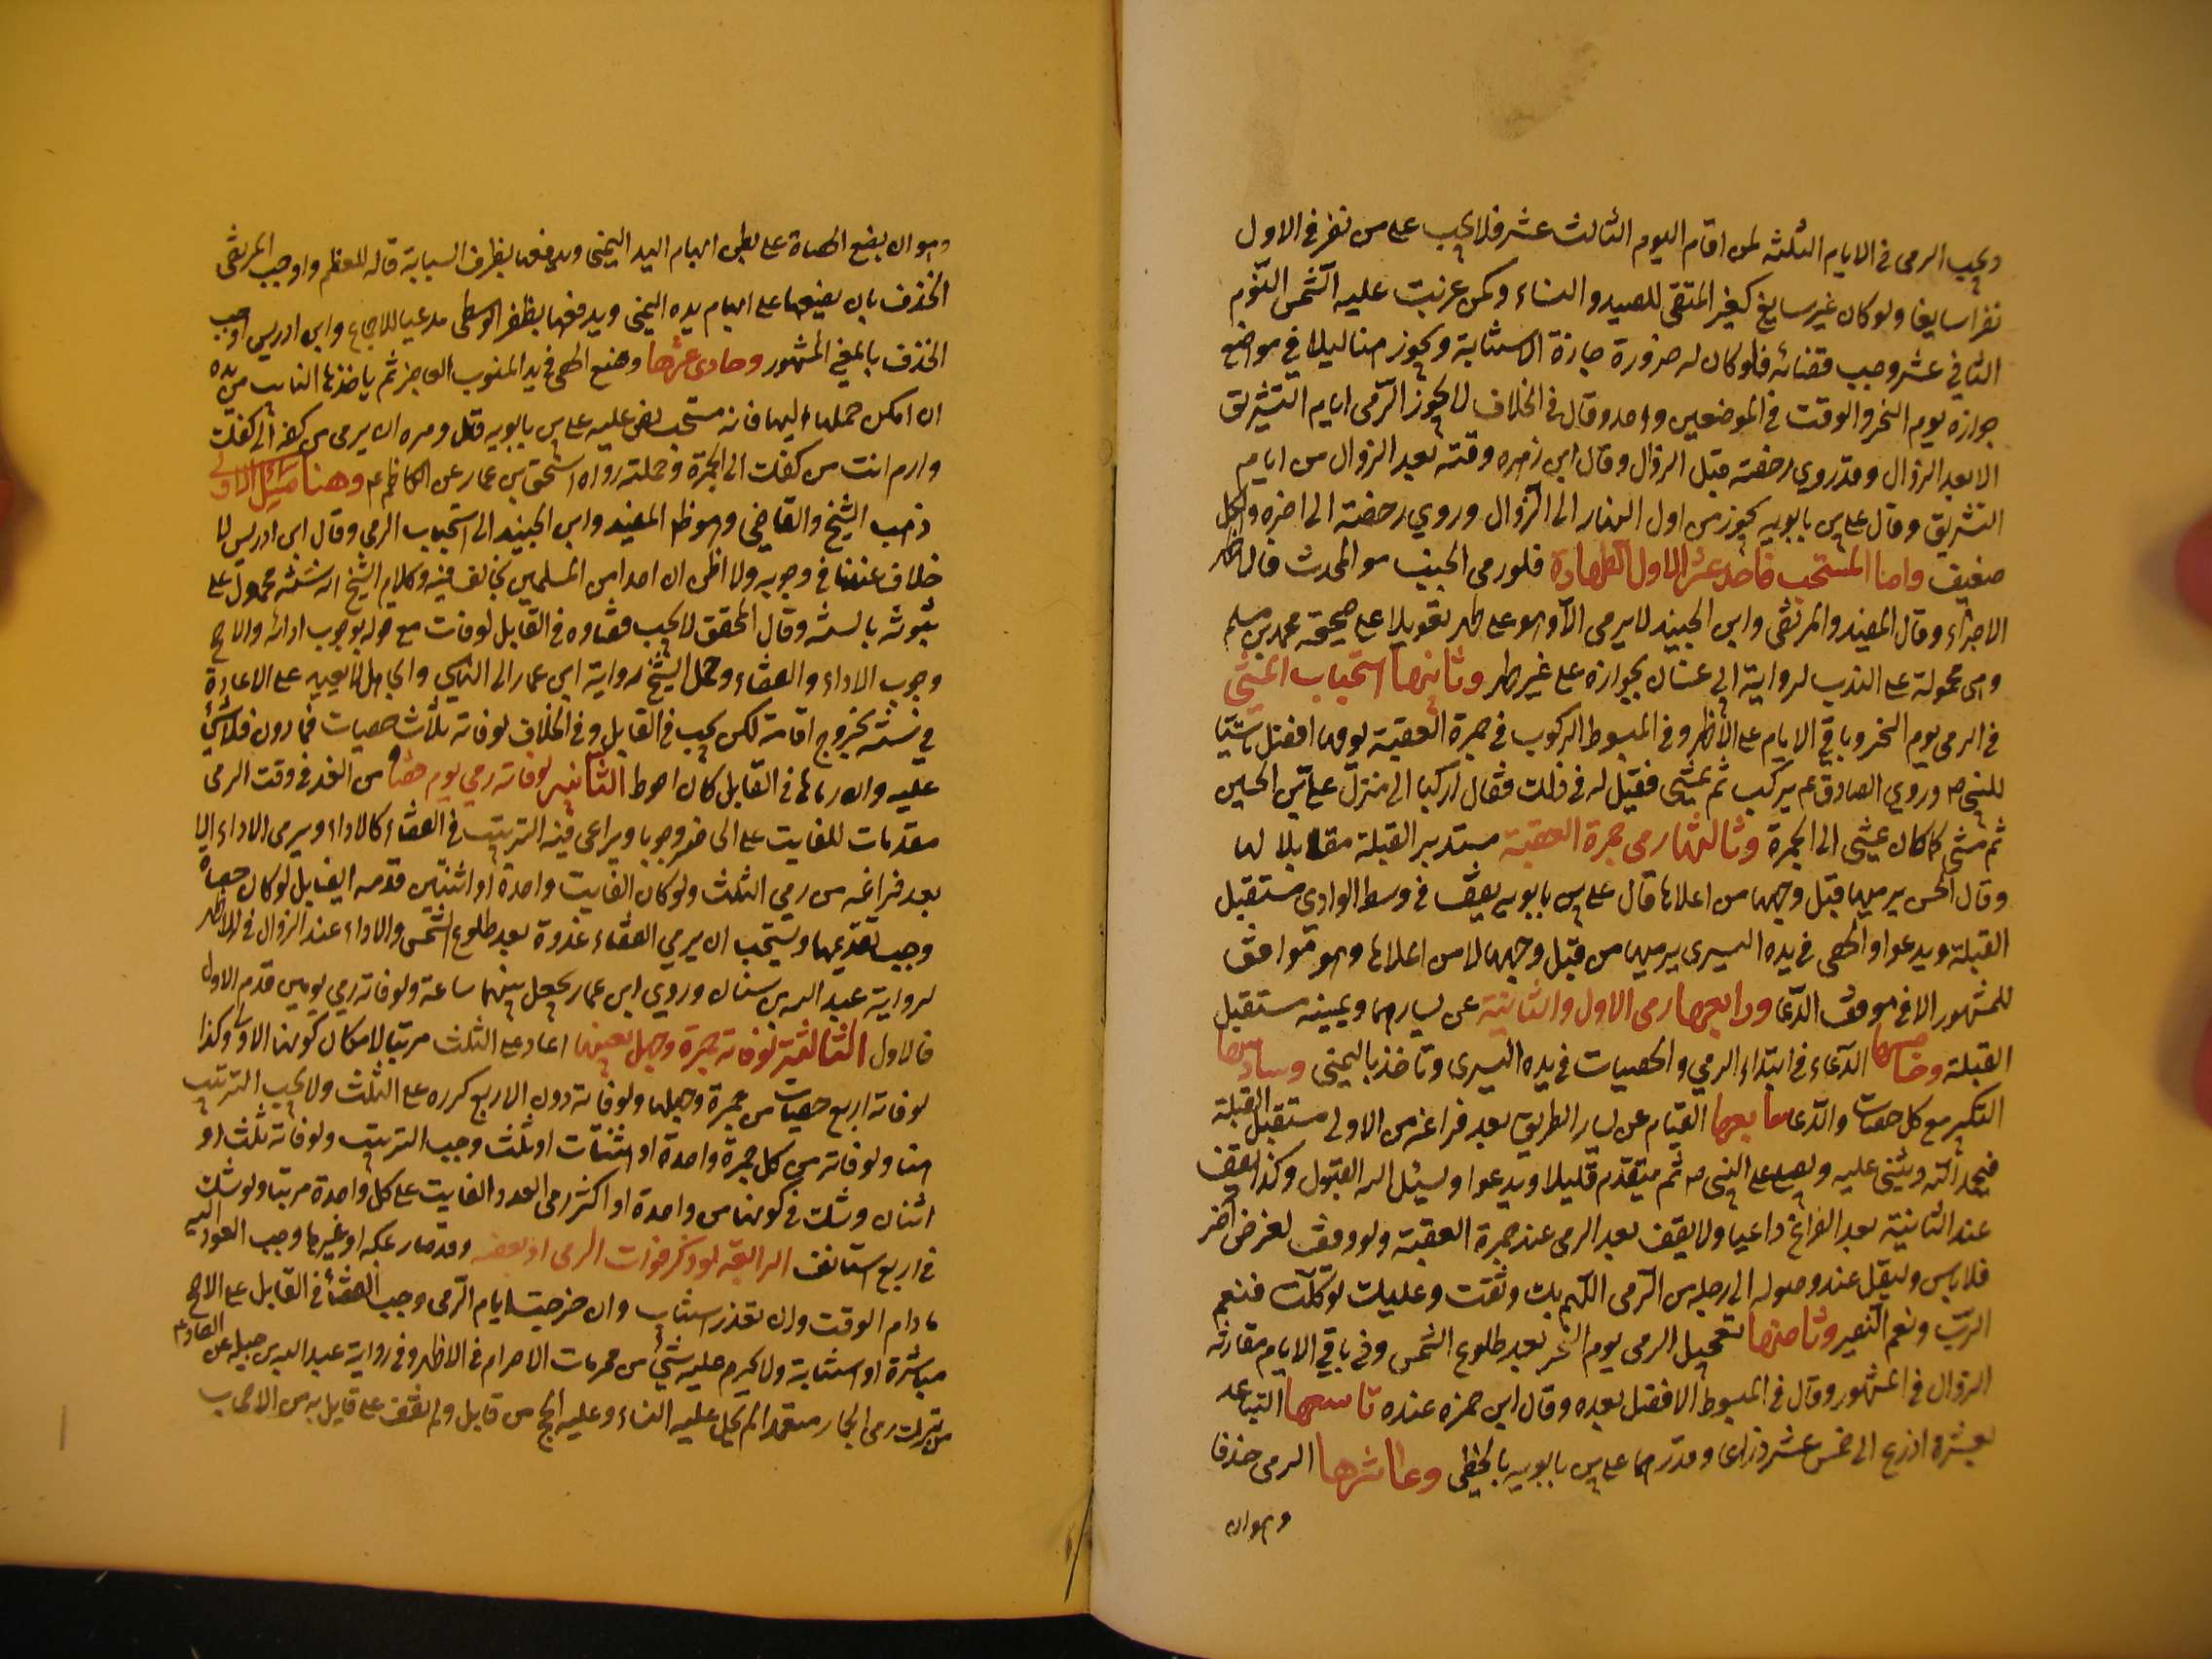 ويجب الرمى في الايام الثلثة لمن اقام اليوم الثالث عشر فلا يجب على من نفر في الاول
نفرا سايغا ولو كان غير سايغ كغير المتقى للصيد والنساء ومن غربت عليه الشمس اليوم
الثاني عشر وجب قضائه فلو كان له ضرورة جازة الاستنابة ويجوز هنا ليلا في مواضع
جوازه يوم النحر والوقت في الموضعين واحد وقال في الخلاف لا يجوز الرمى ايام التشريق
الا بعد الزوال وقد روى رخصة قبل الزوال وقال ابن زهره وقته بعد الزوال من ايام
التشريق وقال على بن بابويه يجوز من اول النهار الى الزوال وروي رخصة الى اخره والكل
ضعيف واما المستحب فاحد عشر الاول الطهارة فلو رمى الجنب او المحدث فالاظهر
الاجزاء وقال المفيد والمرتضى وابن الجنيد لا يرمى الا وهو على طهر تعويلا على صحيحة محمد بن مسلم
وهى محمولة على الندب لرواية ابي غسان بجوازه على غير طهر وثانيها استحباب المشي
في الرمى يوم النحر وباقي الايام على الاظهر وفي المبسوط الركوب في جمرة العقبة يومها افضل تاسيا
للنبى ص وروي الصادق ع يركب ثم يمشى فقيل له في ذلك فقال اركب الى منزل على بن الحسين
ثم مشى كما كان يمشى الى الجمرة وثالثها رمى جمرة العقبة مستدبر القبلة مقابلا لها
وقال الحسن يرميها قبل وجهها من اعلاها قال على بن بابويه يقف في وسط الوادى مستقبل
القبلة ويدعوا والحصى في يده اليسرى يرميها من قبل وجهها لا من اعلاها وهو موافق
للمشهور الا في موقف الدعا ورابعها رمى الاولى والثانية عن يسارهما ويمينه مستقبل
القبلة وخامسها الدعاء في ابتداء الرمي والحصيات في يده اليسرى وتاخذ باليمنى وسادسها
التكبير مع كل حصاة والدعا سابعها القيام عن يسار الطريق بعد فراغه من الاولى مستقبل القبلة
فيحمد الله ويثني عليه ويصلى على النبى ص ثم يتقدم قليلا ويدعوا ويسئل الله القبول وكذا يقف
عند الثانية بعد الفراغ داعيا ولا يقف بعد الرمى عند جمرة العقبة ولو وقف لغرض اخر
فلا باس وليقل عند وصوله الى رحله من الرمى اللهم بك وثقت وعليك توكلت فنعم
الرب ونعم النصير وثامنها تعجيل الرمى يوم النحر بعد طلوع الشمس وفي باقي الايام مقارنه
الزوال في المشهور وقال في المبسوط الافضل بعده وقال ابن حمزه عنده تاسعها التباعد
بعشرة اذرع الى خمس عشر ذراعا وقدرهما على بن بابويه بالخطى وعاشرها الرمى خذفا
وهو ان
وهو ان يضع الحصاة على بطن ابهام اليد اليمنى ويدفعها بظرف السبابة قاله المعظم واوجب المرتضى
الخذف بان يضعها على ابهام يده اليمنى ويدفعها بظفر الوسطى مدعيا للاجماع وابن ادريس اوجب
الخذف بالمعني المشهور وحادى عشرها وضع الحصى في يد المنوب العاجز ثم ياخذها النائب من يده
ان امكن حملها اليها فانه مستحب نص عليه على بن بابويه قال ومره ان يرمى من كفه الى كفك
وارم انت من كفك الى الجمرة وحملته رواه اسحق بن عمار عن الكاظم ع وهنا مسائل الاولى
ذهب الشيخ والقاضي وهو ظ المفيد وابن الجنيد الى استحباب الرمى وقال ابن ادريس لا
خلاف عندنا في وجوبه ولا اظن ان احدا من المسلمين يخالف فيه وكلام الشيخ انه سنة محمول على
ثبوته بالسنة وقال المحقق لا يجب قضاؤه في القابل لو فات مع قوله بوجوب ادائه والاصح
وجوب الاداء والقضاء وحمل الشيخ رواية ابن عمار الى الناسي والجاهل لا يعيد على الاعادة
في سنته بخروج اقامته لكن يجب في القابل وفي الخلاف لو فاته ثلاث حصيات فما دون فلا شئ
عليه وان رماها في القابل كان احوط الثانيه لو فاته رمي يوم قضاه من الغد في وقت الرمى
مقدمات للفايت على الحاضر وجوبا ويراعى فيه الترتيب في القضاء كالاداء ويرمى الاداء
بعد فراغه من رمي الثلث ولو كان الفايت واحدة او اثنتين قدمه ايضا بل لو كان حصاة
وجب تقديمها ويستحب ان يرمي القضاء غدوة بعد طلوع الشمس والاداء عند الزوال في الاظهر
لرواية عبد الله بن سنان وروي ابن عمار يجعل بينهما ساعة ولو فاته رمي يومين قدم الاول
فالاول الثالثة لو فاته جمرة وجهل تعينها اعاد على الثلث مرتبا لامكان كونها الاولى وكذا
لو فاته اربع حصيات من جمرة وجهلها ولو فاته دون الاربع كرره على الثلث ولا يجب الترتيب
هنا ولو فاته من كل جمرة واحدة او اثنتان او ثلث وجب الترتيب ولو فاته ثلث او
اثنان وشك في كونها من واحدة او اكثر رمى العدد الفايت على كل واحدة مرتبا ولو شك
في اربع استانف الرابعة لو ذكر فوات الرمى او بعضه وقد صار بمكه او غيرها وجب العود اليه
ما دام الوقت وان تعذر استناب وان خرجت ايام الرمى وجب القضاء في القابل على الاصح
مباشرة او استنابة ولا يحرم عليه شئ من محرمات الاحرام في الاظهر وفي رواية عبد الله بن جبله عن الصادق ع
من ترك رمى الجمار متعمدا لم يحل عليه النساء وعليه الحج من قابل ولم نقف على قايل به من الاصحاب